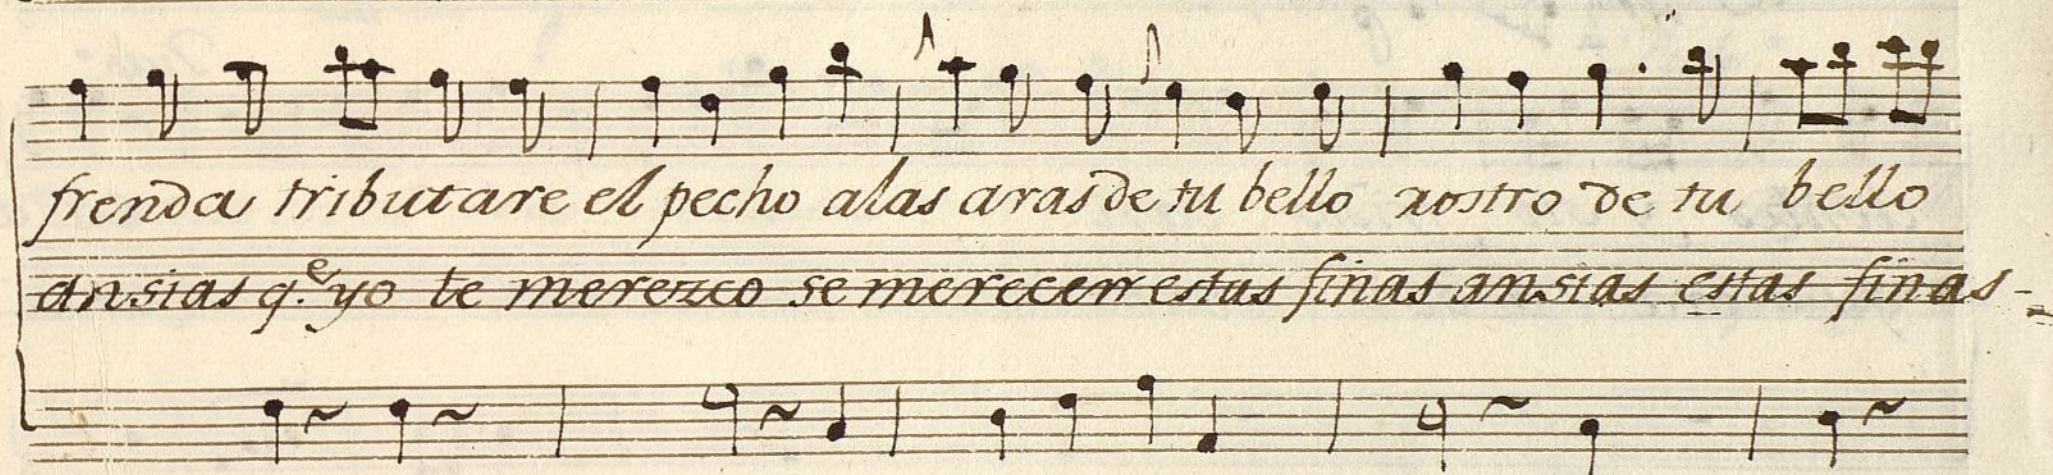 frenda tributare el pecho alas aras de tu bello rostro de tu bello
ansias q.e yo te merezco se merecen estas finas ansias estas finas